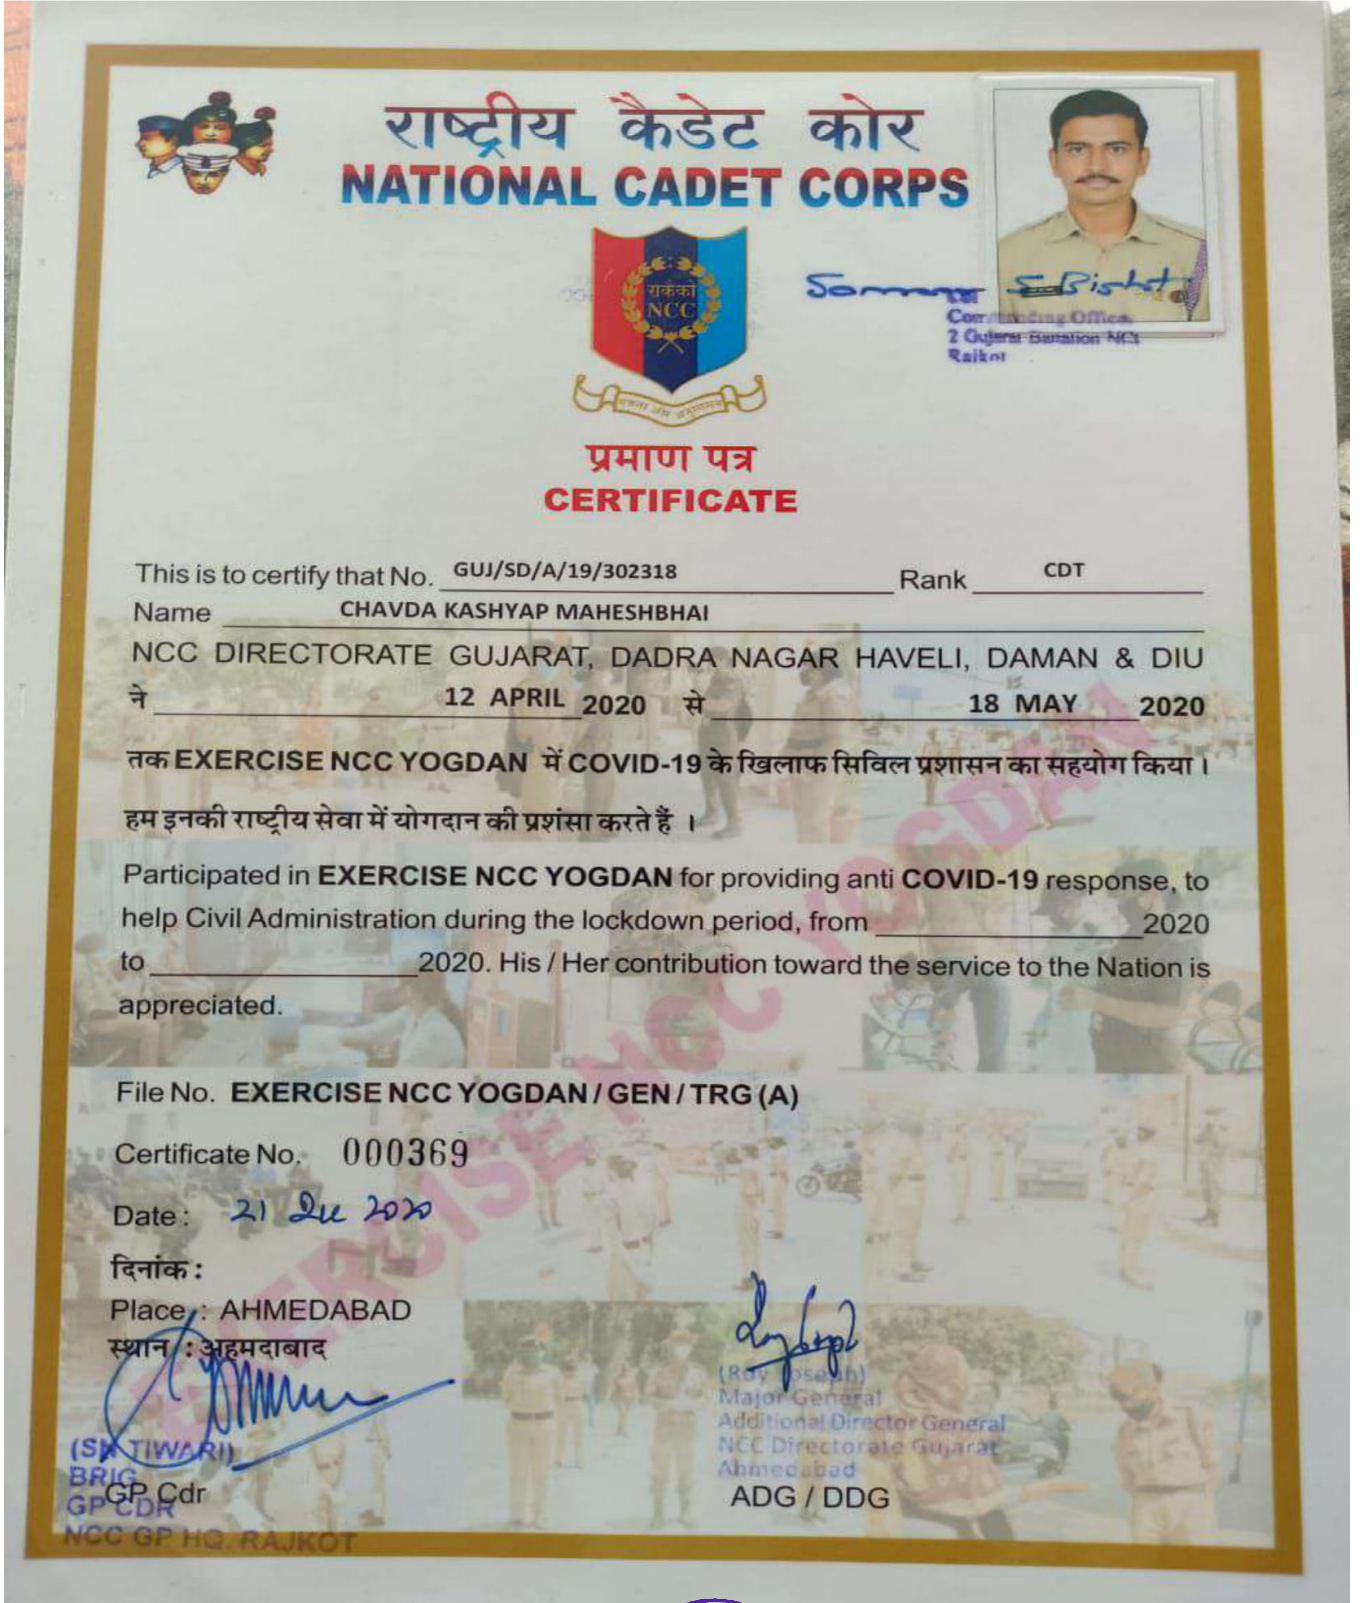 राष्ट्रीय कैडेट कोर
NATIONAL CADET CORPS
राकैको
NCC
एकता और अनुशासन
S Bisht
Commanding Officer
2 Gujarat Battalion NCC
Rajkot
प्रमाण पत्र
CERTIFICATE
This is to certify that No. GUJ/SD/A/19/302318 Rank CDT
Name CHAVDA KASHYAP MAHESHBHAI
NCC DIRECTORATE GUJARAT, DADRA NAGAR HAVELI, DAMAN & DIU
ने 12 APRIL 2020 से 18 MAY 2020
तक EXERCISE NCC YOGDAN में COVID-19 के खिलाफ सिविल प्रशासन का सहयोग किया।
हम इनकी राष्ट्रीय सेवा में योगदान की प्रशंसा करते हैं ।
Participated in EXERCISE NCC YOGDAN for providing anti COVID-19 response, to
help Civil Administration during the lockdown period, from 2020
to 2020. His / Her contribution toward the service to the Nation is
appreciated.
EXERCISE NCC YOGDAN
File No. EXERCISE NCC YOGDAN / GEN / TRG (A)
Certificate No. 000369
Date : 21 Dec 2020
दिनांक :
Place : AHMEDABAD
स्थान : अहमदाबाद
(SN TIWARI)
BRIG
GP CDR
GP Cdr
NCC GP HQ. RAJKOT
(Roy Joseph)
Major General
Additional Director General
NCC Directorate Gujarat
Ahmedabad
ADG / DDG